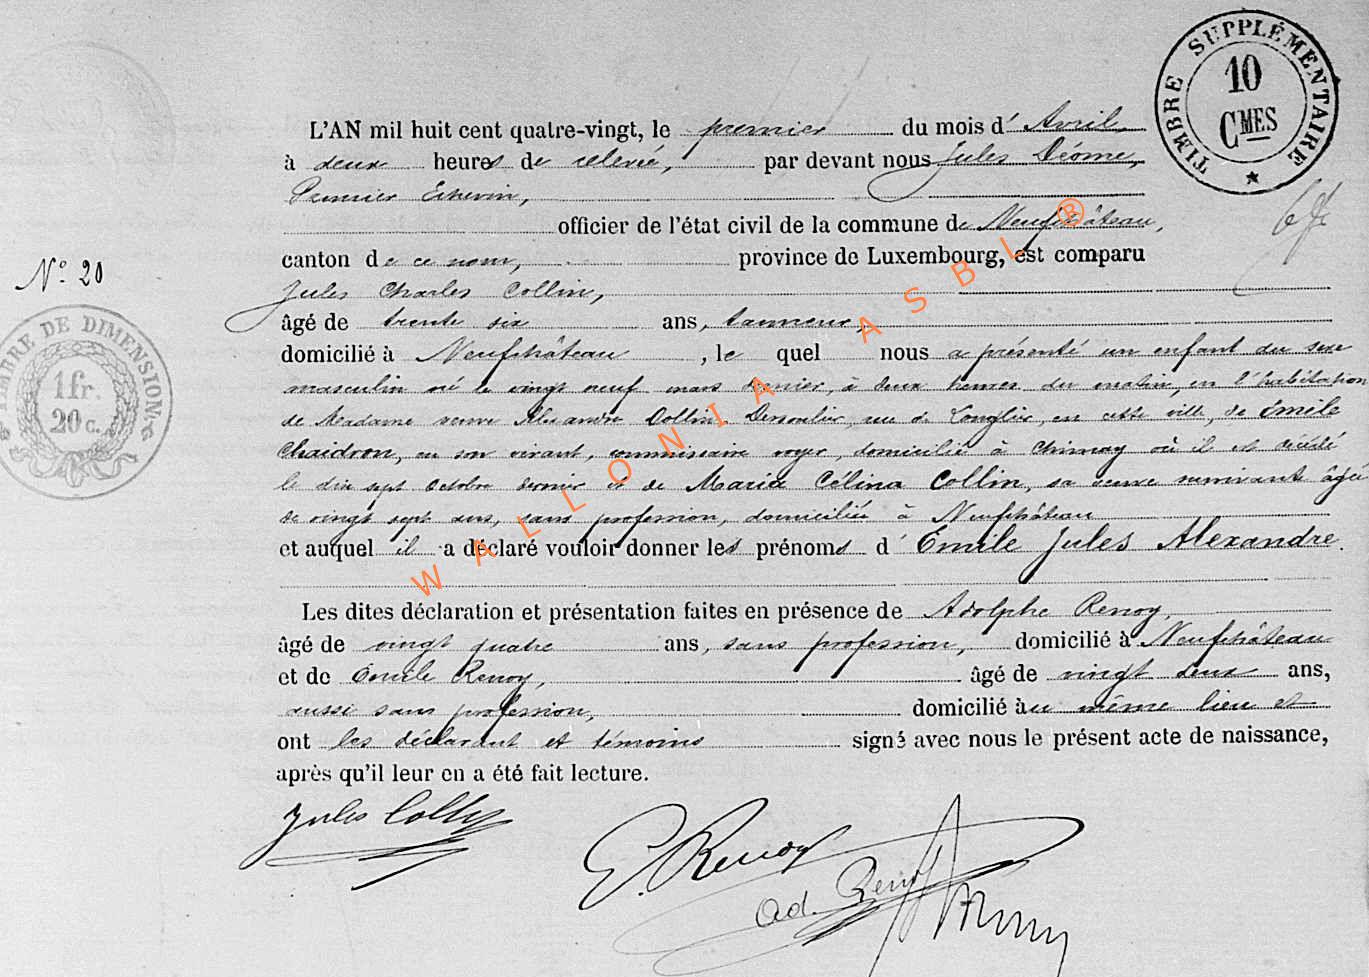 TIMBRE SUPPLÉMENTAIRE
10
CMES
L'AN mil huit cent quatre-vingt, le premier du mois d'Avril,
à deux heures de relevée, par devant nous Jules Déome,
Premier Echevin,
officier de l'état civil de la commune de Neufchâteau,
canton de ce nom, province de Luxembourg, est comparu
N° 20
Jules Charles Collin,
âgé de trente six ans, tanneur,
TIMBRE DE DIMENSION
1 fr.
20 c.
domicilié à Neufchâteau, le quel nous a présenté un enfant du sexe
masculin né le vingt neuf mars dernier, à deux heures du matin, en l'habitation
de Madame veuve Alexandre Collin Dessoulier, rue de Longlier, en cette ville, de Emile
Chaidron, en son vivant, commissaire voyer, domicilié à Chimay où il est décédé
le dix sept Octobre dernier et de Maria Célina Collin, sa veuve survivante âgée
de vingt sept ans, sans profession, domiciliée à Neufchâteau
et auquel il a déclaré vouloir donner les prénoms d'Emile Jules Alexandre.
Les dites déclaration et présentation faites en présence de Adolphe Renoy,
âgé de vingt quatre ans, sans profession, domicilié à Neufchâteau
et de Emile Renoy, âgé de vingt deux ans,
aussi sans profession, domicilié au même lieu et
ont les déclarant et témoins signé avec nous le présent acte de naissance,
après qu'il leur en a été fait lecture.
Jules Collin
E. Renoy
ad. Renoy
WALLONIA ASBL ®